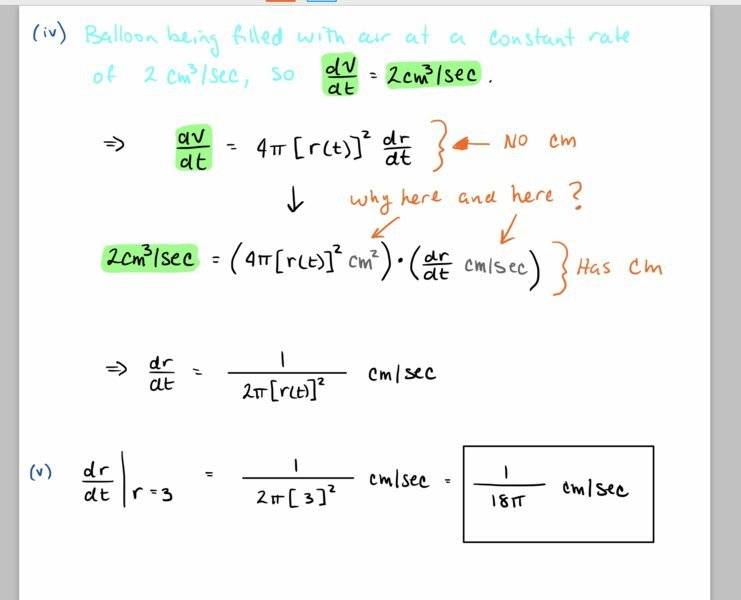 (iv) Balloon being filled with air at a constant rate
of 2 cm³/sec, so dV/dt = 2cm³/sec.
⇒ dV/dt = 4π[r(t)]² dr/dt } ← NO cm
↓ why here and here?
2cm³/sec = (4π[r(t)]² cm²)·(dr/dt cm/sec) } Has cm
⇒ dr/dt = 1/2π[r(t)]² cm/sec
(v) dr/dt | r=3 = 1/2π[3]² cm/sec = 1/18π cm/sec